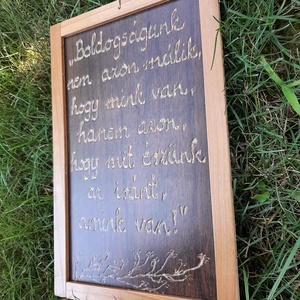 „Boldogságunk
nem azon múlik,
hogy mink van,
hanem azon,
hogy mit érzünk
az iránt,
amink van!"